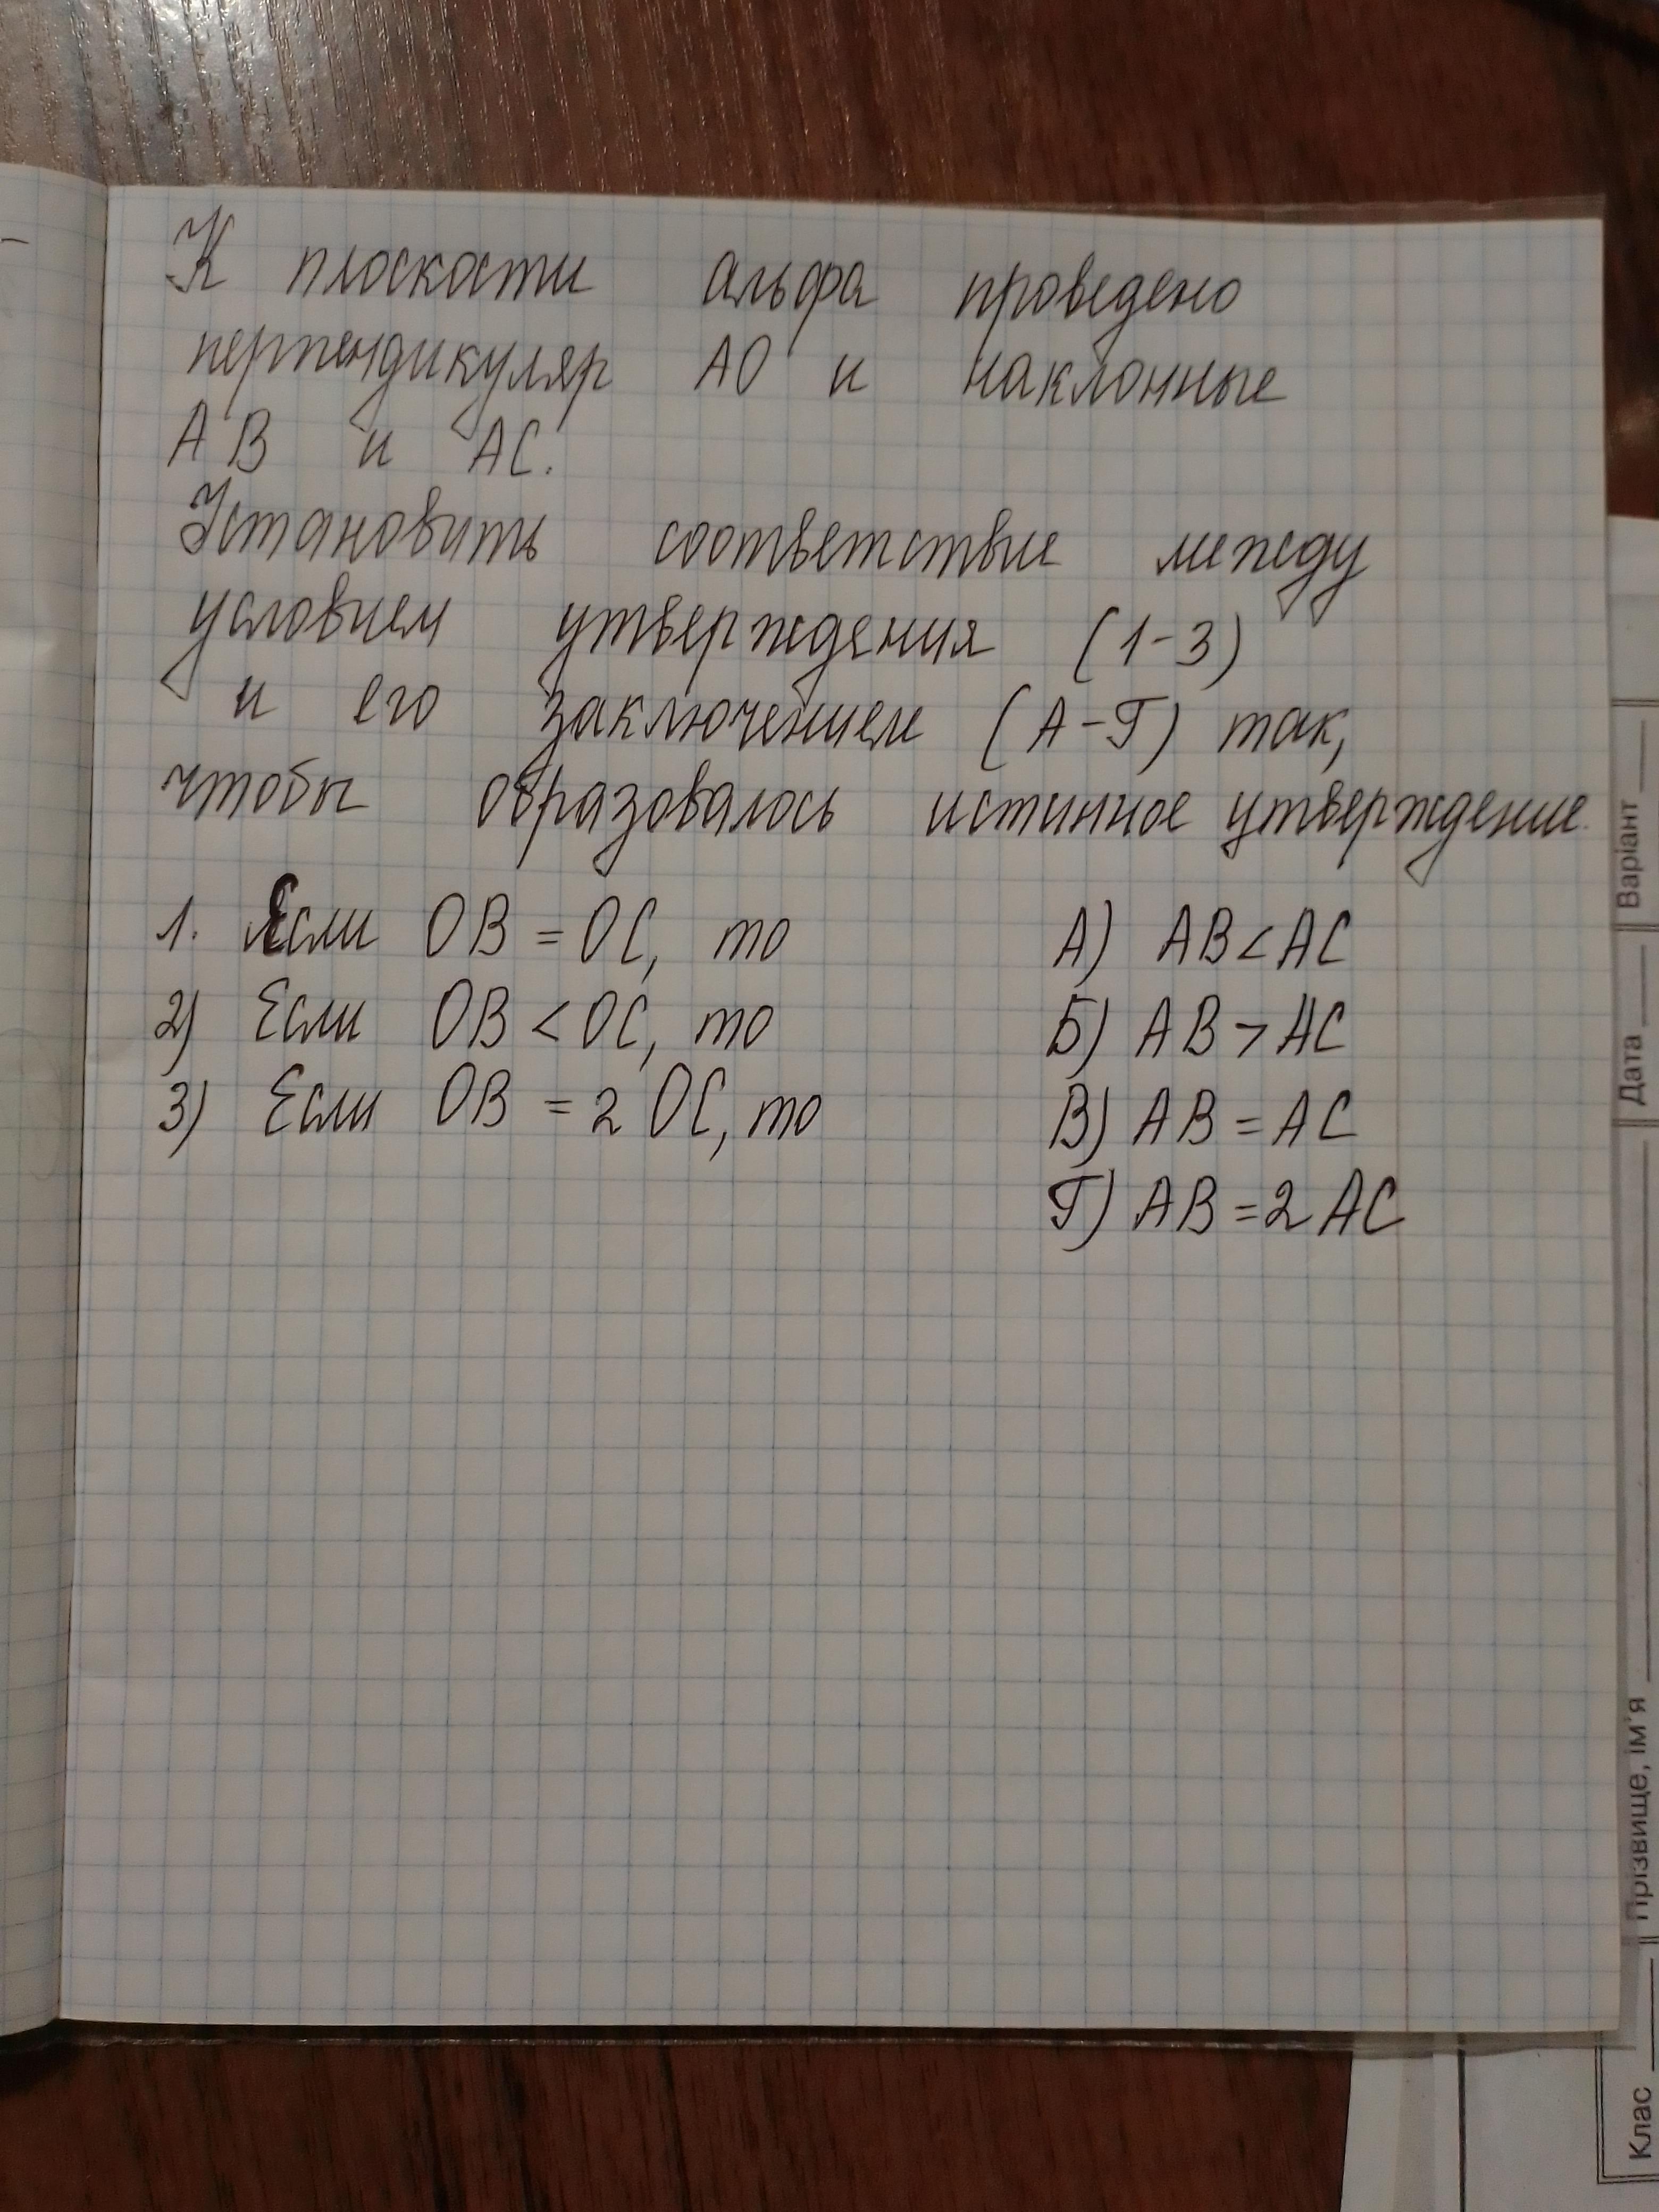 К плоскости альфа проведено
перпендикуляр АО и наклонные
АВ и АС.
Установить соответствие между
условием утверждения (1-3)
и его заключением (А-Г) так,
чтобы образовалось истинное утверждение.
1. Если ОВ = ОС, то
А) АВ < АС
2) Если ОВ < ОС, то
Б) АВ > АС
3) Если ОВ = 2 ОС, то
В) АВ = АС
Г) АВ = 2 АС
Варіант
Дата
Прізвище, ім'я
Клас